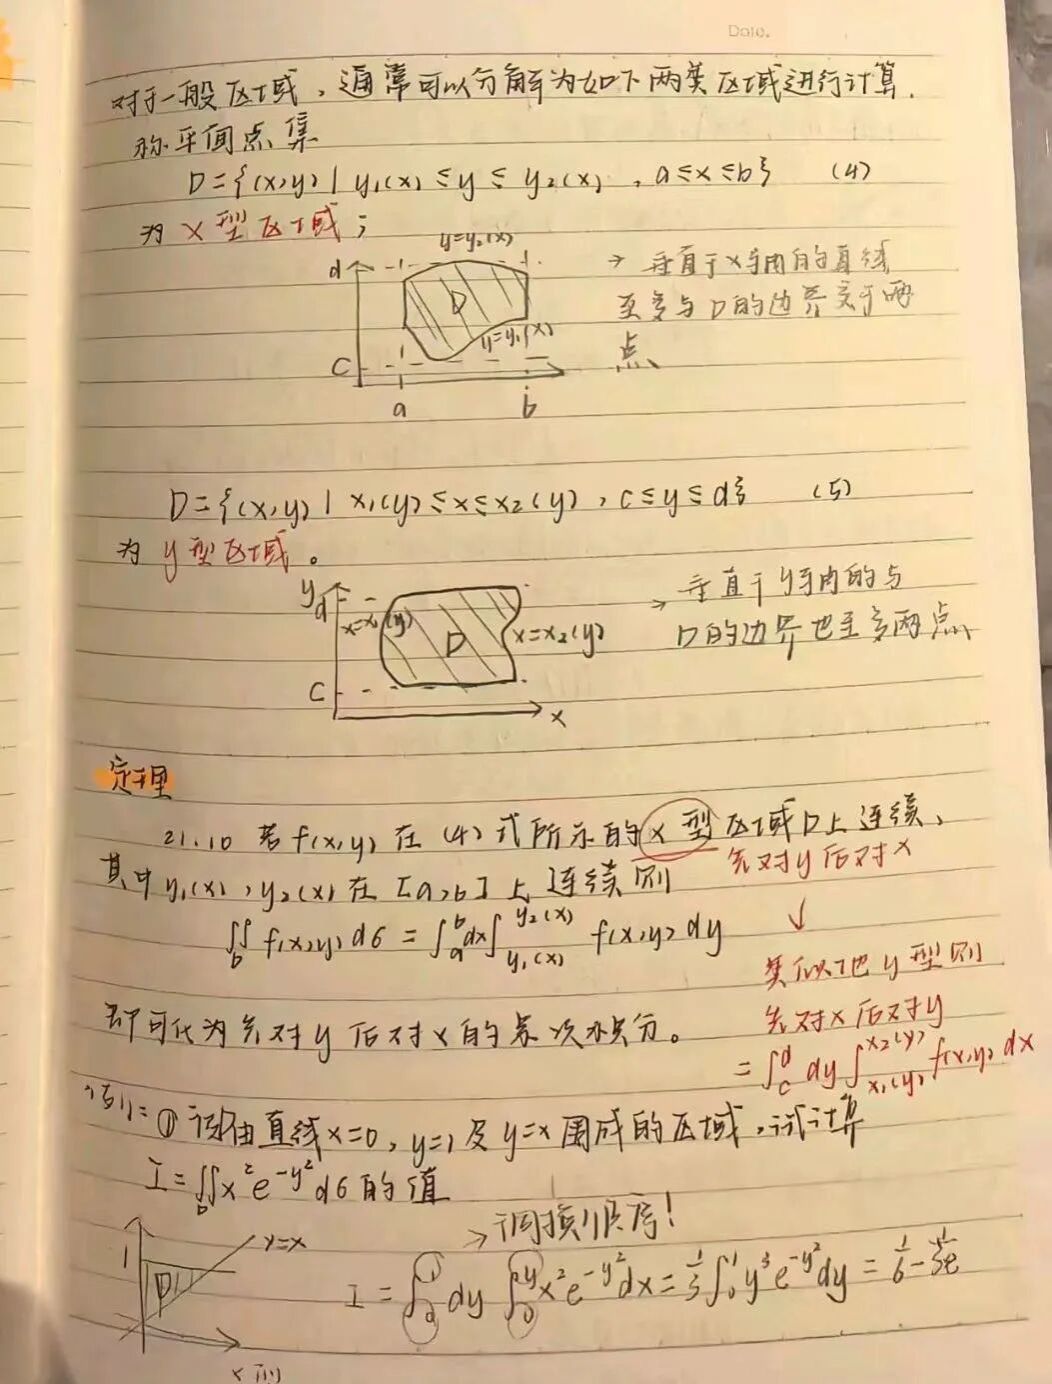 Date.
对于一般区域，通常可以分解为如下两类区域进行计算.
称平面点集
D={(x,y) | y₁(x) ≤y≤ y₂(x) , a≤x≤b} (4)
为 x型区域；
y=y₂(x)
d
D
y=y₁(x)
C
a b
→ 垂直于x轴的直线
至多与D的边界交于两
点
D={(x,y) | x₁(y)≤x≤x₂(y) , c≤y≤d} (5)
为 y型区域。
y
d
x=x₁(y) D x=x₂(y)
C
x
→ 垂直于y轴的与
D的边界也至多两点
定理
21.10 若f(x,y) 在 (4) 式所示的x型区域D上连续，
先对y后对x
其中y₁(x) , y₂(x) 在 [a,b] 上连续则
∬_D f(x,y) dσ = ∫_a^b dx ∫_{y₁(x)}^{y₂(x)} f(x,y) dy
↓
类似地y型则
先对x后对y
= ∫_c^d dy ∫_{x₁(y)}^{x₂(y)} f(x,y) dx
即可化为先对y后对x的累次积分。
例: ① 设D由直线x=0, y=1 及 y=x 围成的区域，试计算
I=∬_D x² e^{-y²} dσ 的值
→ 调换顺序!
1 y=x
D
I = ∫_0^1 dy ∫_0^y x² e^{-y²} dx = 1/3 ∫_0^1 y³ e^{-y²} dy = 1/6 - 1/3e
x型